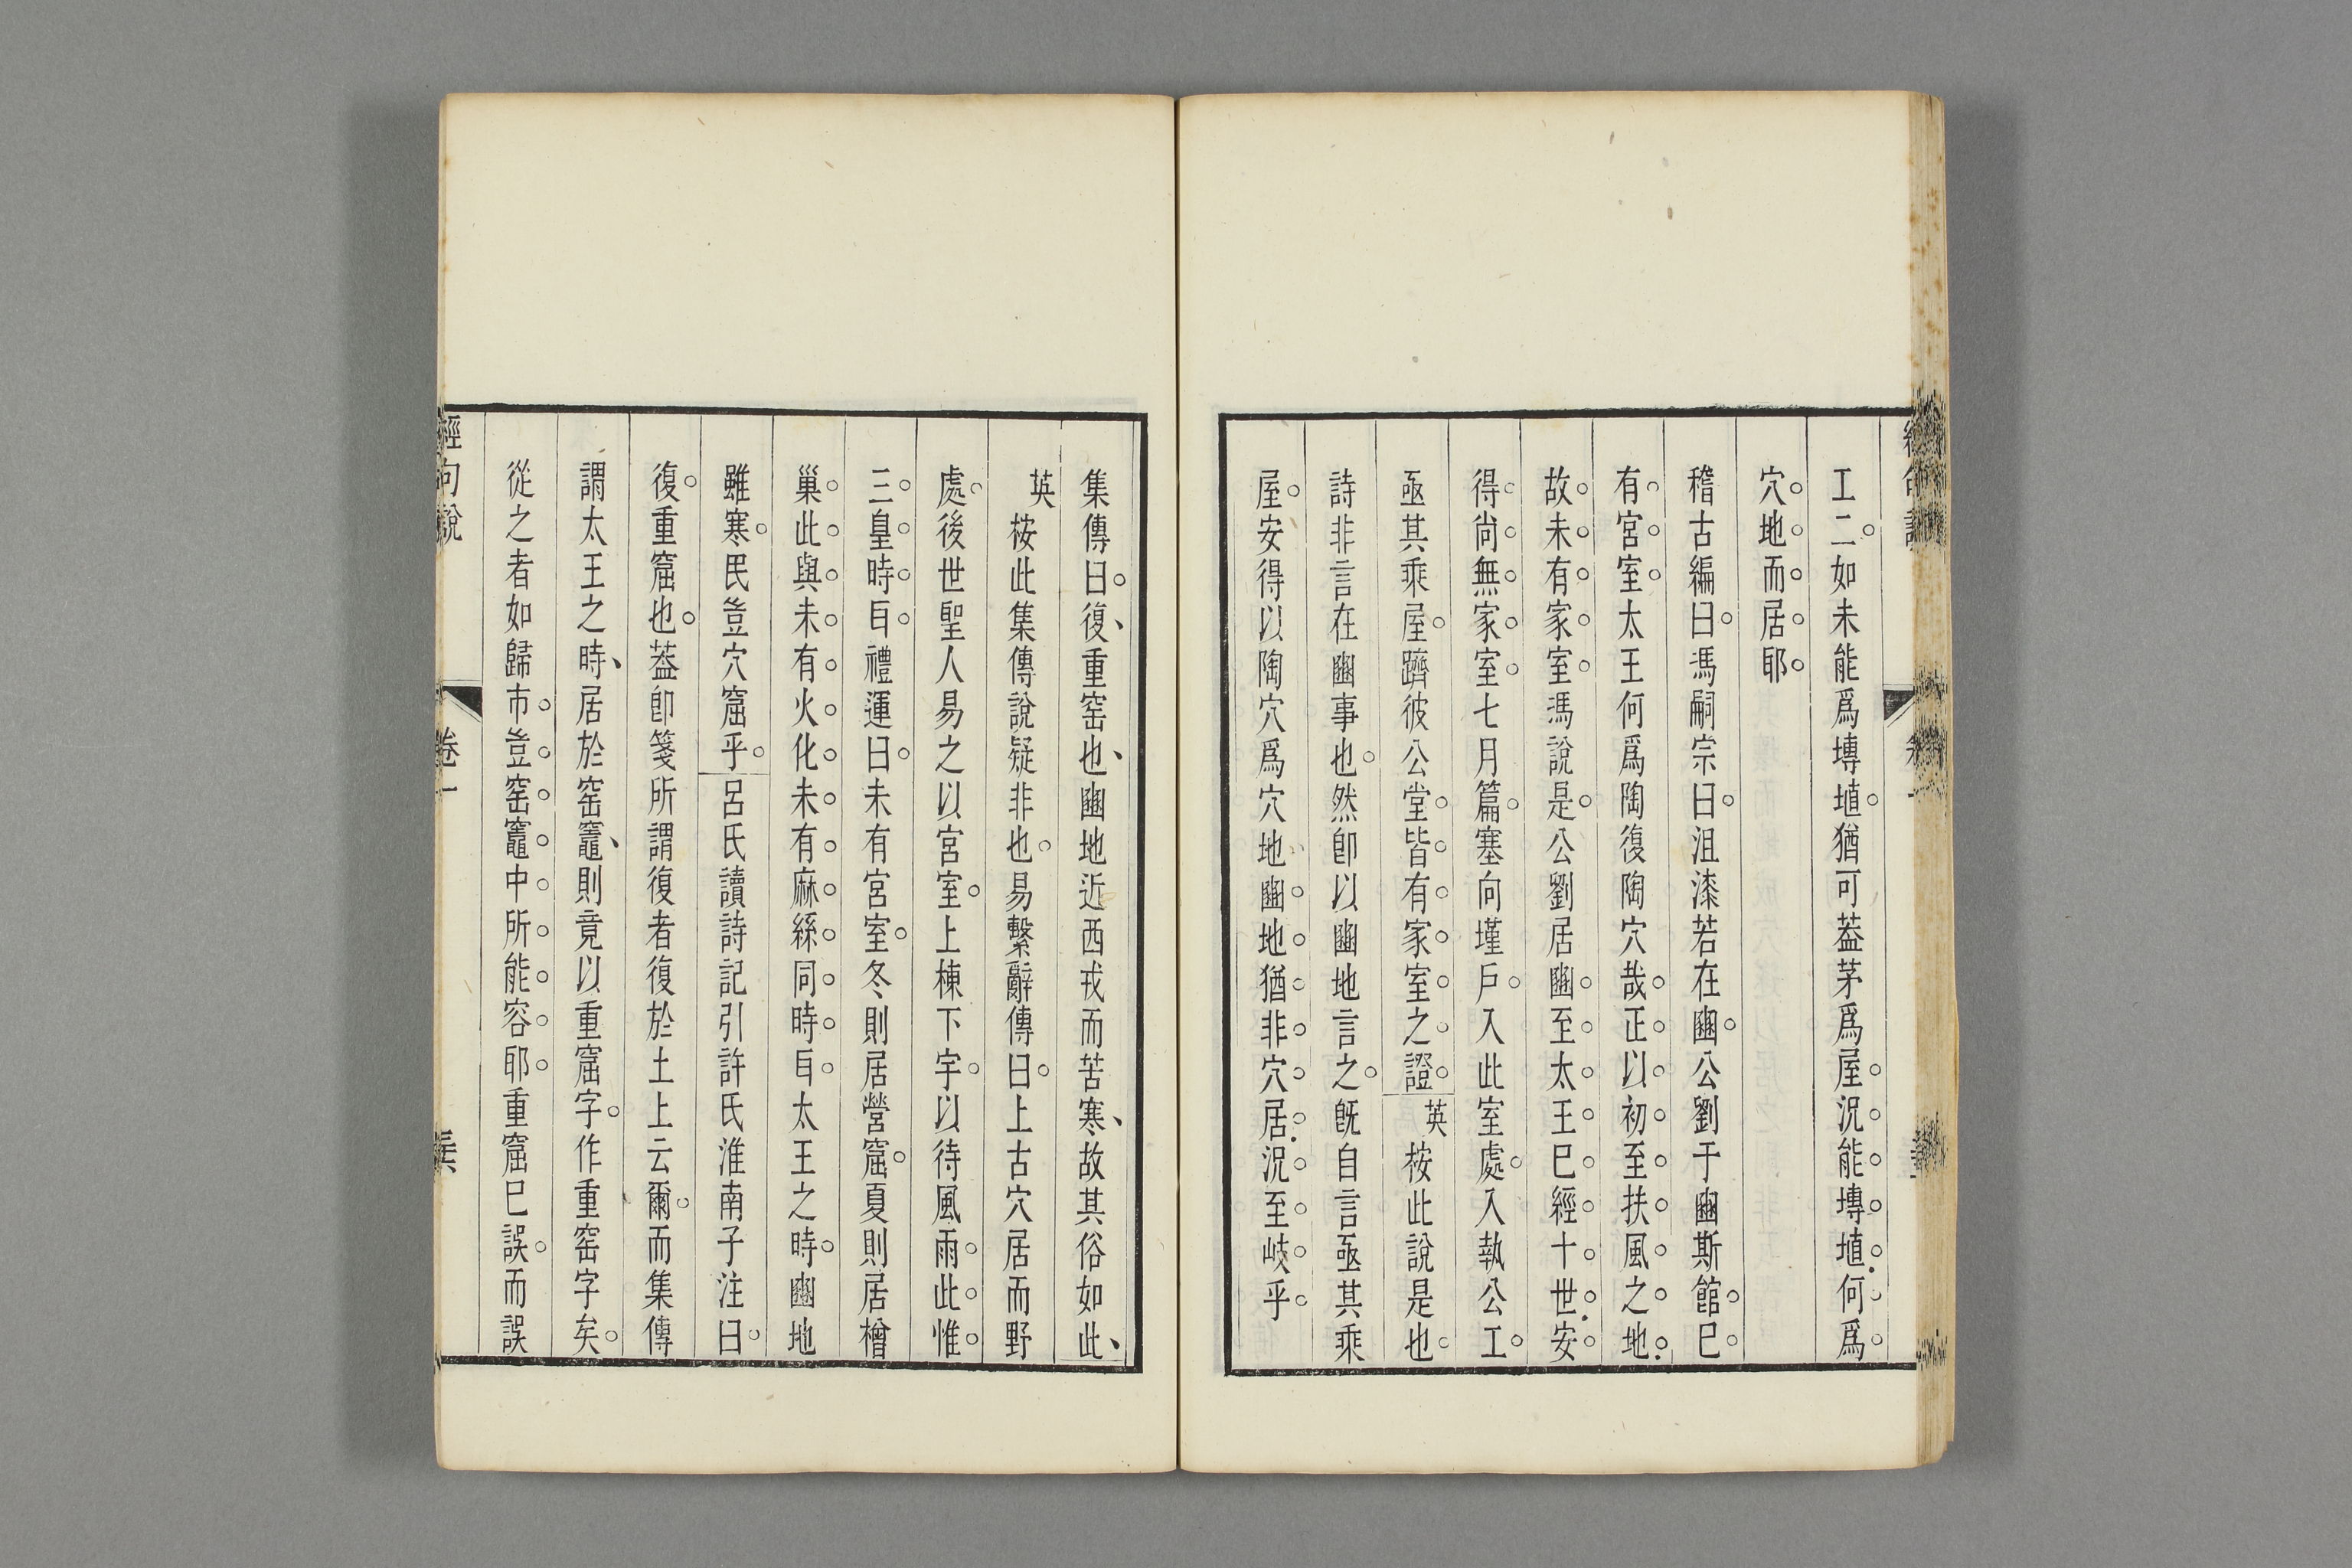 工二如未能爲塼埴猶可葢茅爲屋况能塼埴何爲
穴地而居耶
稽古編曰馮嗣宗曰沮漆若在豳公劉于豳斯館巳
有宮室太王何爲陶復陶穴哉正以初至扶風之地
故未有家室馮說是公劉居豳至太王巳經十世安
得尙無家室七月篇塞向墐戶入此室處入執公工
亟其乘屋躋彼公堂皆有家室之證英桉此說是也
詩非言在豳事也然卽以豳地言之旣自言亟其乘
屋安得以陶穴爲穴地豳地猶非穴居况至岐乎
集傳曰復重窑也豳地近西戎而苦寒故其俗如此
英桉此集傳說疑非也易繫辭傳曰上古穴居而野
處後世聖人易之以宮室上棟下宇以待風雨此惟
三皇時耳禮運曰未有宮室冬則居營窟夏則居橧
巢此與未有火化未有麻絲同時耳太王之時豳地
雖寒民豈穴窟乎呂氏讀詩記引許氏淮南子注曰
復重窟也葢卽箋所謂復者復於土上云爾而集傳
謂太王之時居於窑竈則竟以重窟字作重窑字矣
從之者如歸市豈窑竈中所能容耶重窟巳誤而誤
經句說
卷一